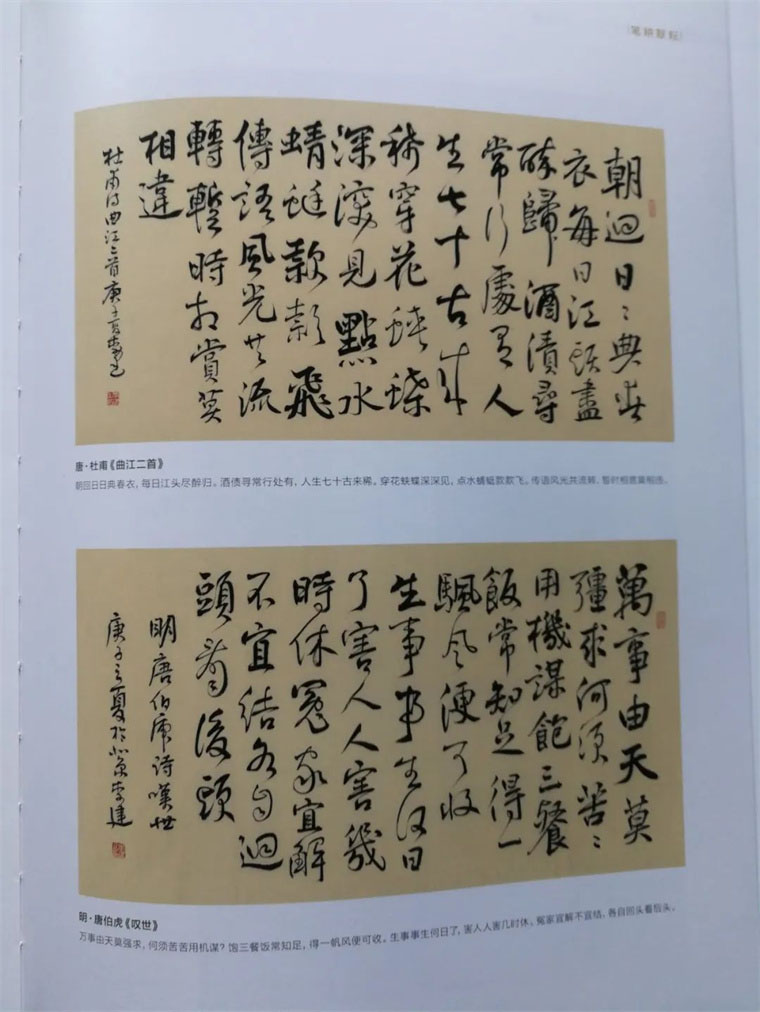 笔耕墨耘
朝迴日〻典春
衣每日江頭盡
醉歸酒債尋
常行處有人
生七十古來
稀穿花蛺蝶
深深見點水
蜻蜓款款飛
傳語風光共流
轉蹔時相賞莫
相違
杜甫诗曲江二首庚子夏李建
唐·杜甫《曲江二首》
朝回日日典春衣，每日江头尽醉归。酒债寻常行处有，人生七十古来稀。穿花蛱蝶深深见，点水蜻蜓款款飞。传语风光共流转，暂时相赏莫相违。
萬事由天莫
彊求何須苦〻
用機謀飽三餐
飯常知足得一
颿風便可收
生事事生何日
了害人人害幾
時休冤家宜解
不宜結各自迴
頭看後頭
明唐伯虎詩嘆世
庚子之夏於北京李建
明·唐伯虎《叹世》
万事由天莫强求，何须苦苦用机谋？饱三餐饭常知足，得一帆风便可收。生事事生何日了，害人人害几时休。冤家宜解不宜结，各自回头看后头。